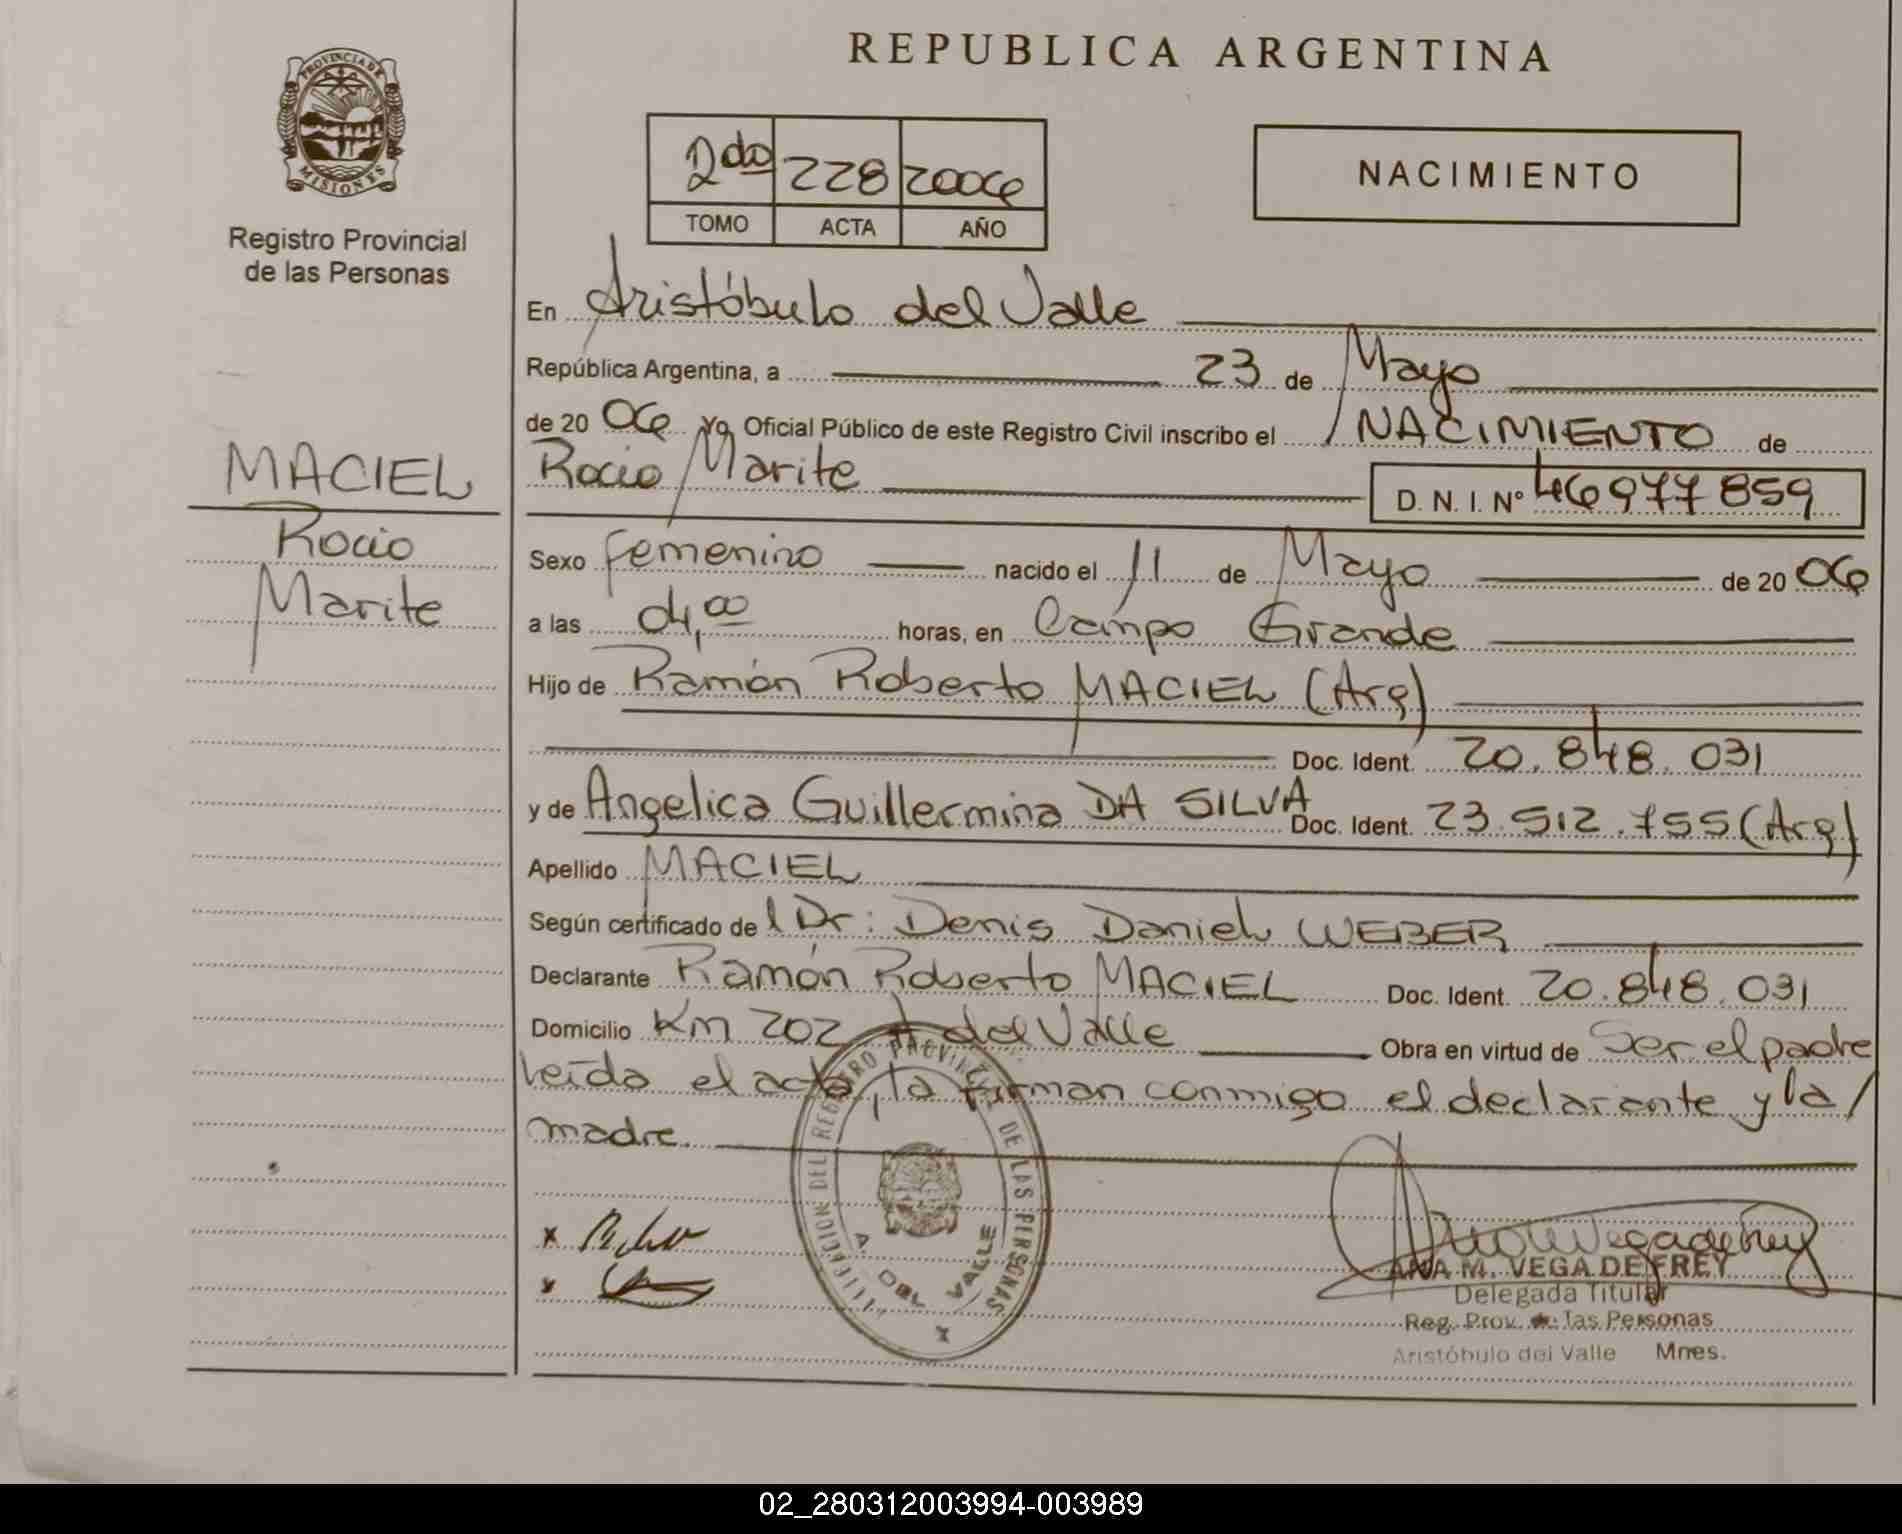 REPUBLICA ARGENTINA
PROVINCIA DE
MISIONES
Registro Provincial
de las Personas
2do 228 2006
TOMO ACTA AÑO
NACIMIENTO
En Aristóbulo del Valle
República Argentina, a 23 de Mayo
de 20 06 Yo Oficial Público de este Registro Civil inscribo el NACIMIENTO de
Rocio Marite D. N. I. Nº 46977859
MACIEL
Rocio
Marite
Sexo femenino nacido el 11 de Mayo de 20 06
a las 04,00 horas, en Campo Grande
Hijo de Ramón Roberto MACIEL (Arg)
Doc. Ident. 20.848.031
y de Angelica Guillermina DA SILVA Doc. Ident. 23.512.755 (Arg)
Apellido MACIEL
Según certificado de l Dr: Denis Daniel WEBER
Declarante Ramón Roberto MACIEL Doc. Ident. 20.848.031
Domicilio Km 202 A del Valle Obra en virtud de Ser el padre
leída el acta, la firman conmigo el declarante y la /
madre.
DEL REGISTRO PROVINCIAL DE LAS PERSONAS
A. DEL VALLE
ANA M. VEGA DE FREY
Delegada Titular
Reg. Prov. de las Personas
Aristóbulo del Valle Mnes.
02_280312003994-003989